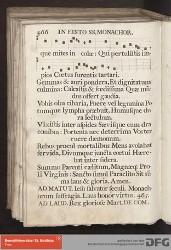 466 IN FESTO SS. MONACHOR.
que mites in colæ: Qui pertulistis im-
pios Coetus furentis tartari.
Gemmas & auri pondera, Et dignitatum
culmina: Calcastis & foedissima Quæ mun-
dus offert gaudia.
Vobis olus cibaria, Fuere vel legumina Po-
tumque lympha præbuit, Humusque du-
ra lectulum.
Vixistis inter aspides Sævisque cum dra-
conibus: Portenta nec teterrima Vester
ruere dæmonum.
Rebus procul mortalibus Mens avolabat
fervida, Divumque juncta coetui Hære-
bat inter sidera.
Summo Parenti coelitum, Magnæque Pro-
li Virginis: Sancto simul Paraclito Sit sum-
ma laus & gloria. Amen.
AD MATUT. Jesu salvator sæculi. Monach
offensa fragilia. Laus honor virtus. 467.
AD LAUD. Rex gloriose Mart. DE COM.
DFG